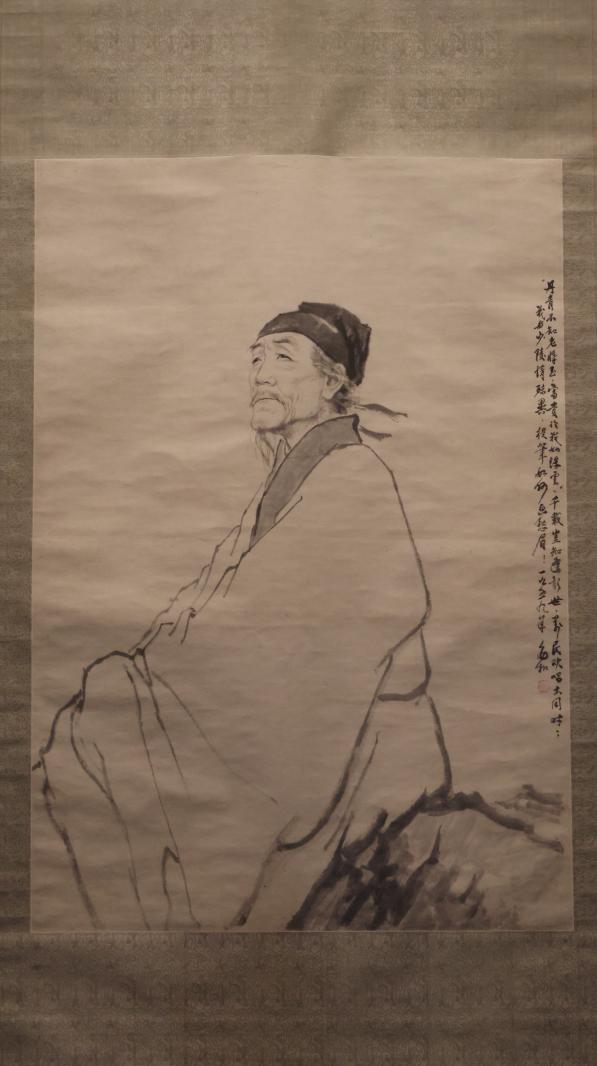 丹青不知老將至、富貴於我如浮雲、千載豈知逢彩世、萬民歡唱大同時；
我與少陵情殊異、提筆如何畫愁眉！一九五九年 兆和